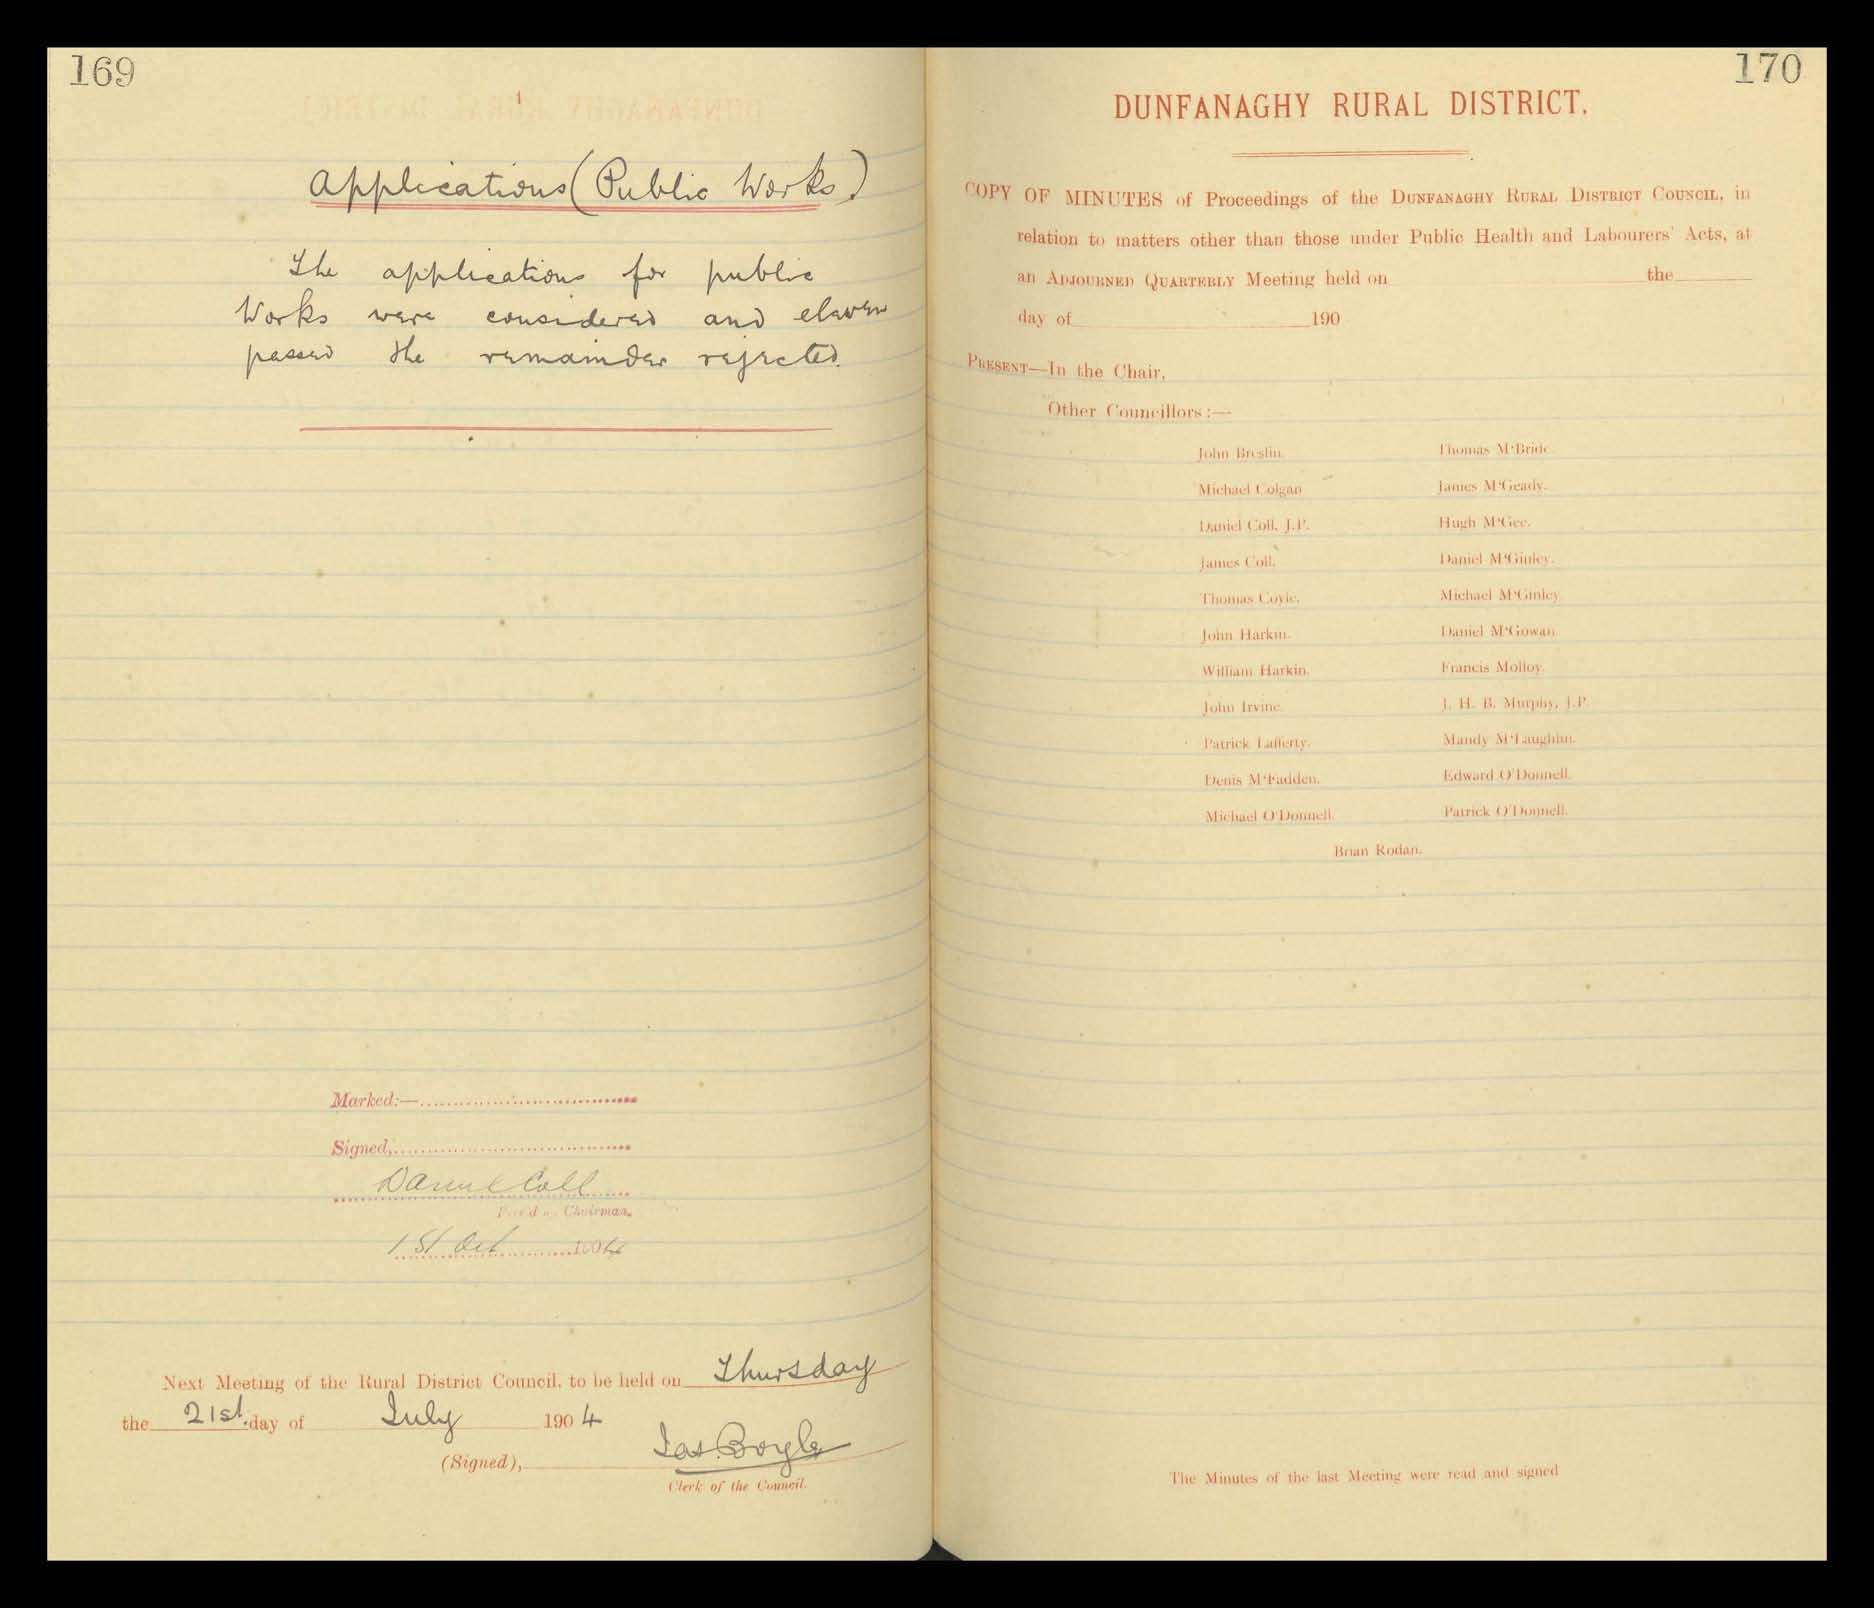 169
Applications (Public Works)
The applications for public
Works were considered and eleven
passed the remainder rejected.
Marked:—
Signed,
Daniel Coll
Chairman.
1st Oct 1904
Next Meeting of the Rural District Council, to be held on Thursday
the 21st. day of July 1904
(Signed), Jas. Boyle
Clerk of the Council.
170
DUNFANAGHY RURAL DISTRICT.
COPY OF MINUTES of Proceedings of the DUNFANAGHY RURAL DISTRICT COUNCIL, in
relation to matters other than those under Public Health and Labourers' Acts, at
an ADJOURNED QUARTERLY Meeting held on the
day of 190
PRESENT—In the Chair,
Other Councillors:—
John Breslin. Thomas M'Bride.
Michael Colgan James M'Geady.
Daniel Coll, J.P. Hugh M'Gee.
James Coll. Daniel M'Ginley.
Thomas Coyle. Michael M'Ginley
John Harkin. Daniel M'Gowan.
William Harkin. Francis Molloy.
John Irvine. J. H. B. Murphy, J.P.
Patrick Lafferty. Mandy M'Laughlin.
Denis M'Fadden. Edward O'Donnell.
Michael O'Donnell. Patrick O'Donnell.
Brian Rodan.
The Minutes of the last Meeting were read and signed